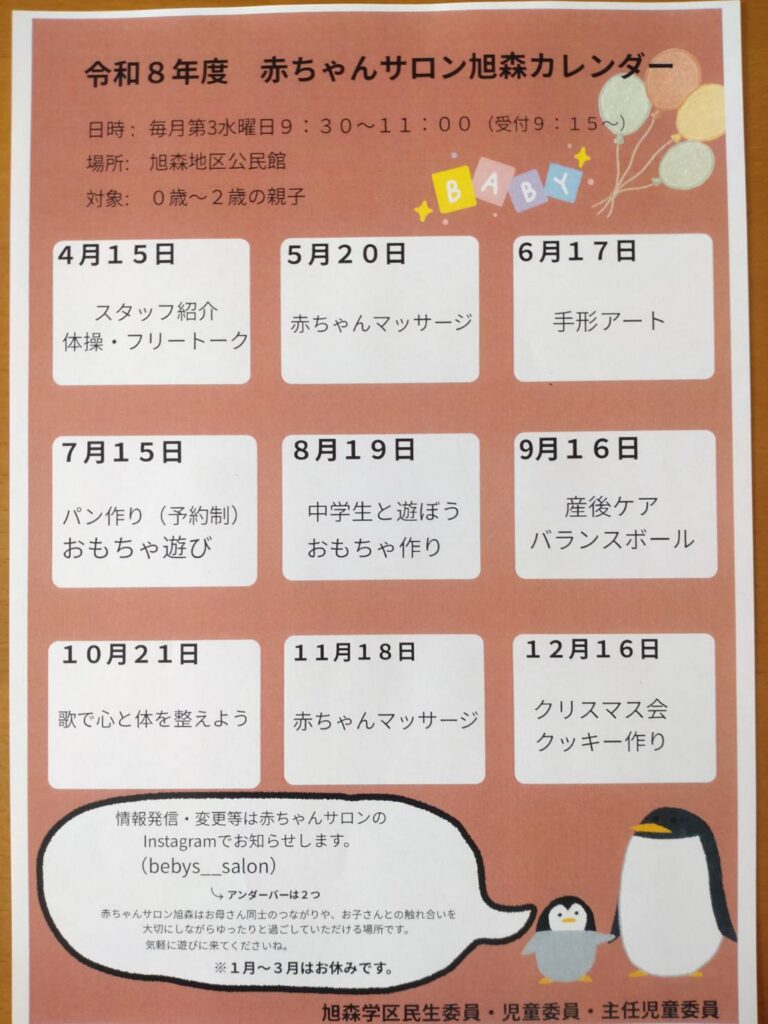 令和８年度　赤ちゃんサロン旭森カレンダー
日時：毎月第3水曜日９：３０～１１：００（受付９：１５～）
場所:　旭森地区公民館
対象:　０歳～２歳の親子
BABY
４月１５日
スタッフ紹介
体操・フリートーク
５月２０日
赤ちゃんマッサージ
６月１７日
手形アート
７月１５日
パン作り（予約制）
おもちゃ遊び
８月１９日
中学生と遊ぼう
おもちゃ作り
9月１６日
産後ケア
バランスボール
１０月２１日
歌で心と体を整えよう
１１月１８日
赤ちゃんマッサージ
１２月１６日
クリスマス会
クッキー作り
情報発信・変更等は赤ちゃんサロンの
Instagramでお知らせします。
（bebys__salon）
アンダーバーは２つ
赤ちゃんサロン旭森はお母さん同士のつながりや、お子さんとの触れ合いを
大切にしながらゆったりと過ごしていただける場所です。
気軽に遊びに来てくださいね。
※１月～３月はお休みです。
旭森学区民生委員・児童委員・主任児童委員